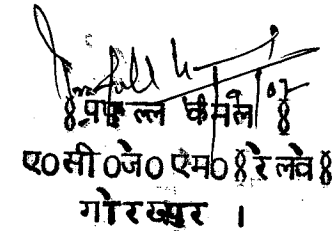 §प्रफुल्ल कमल§
ए0सी0जे0एम0§रेलवे§
गोरखपुर ।